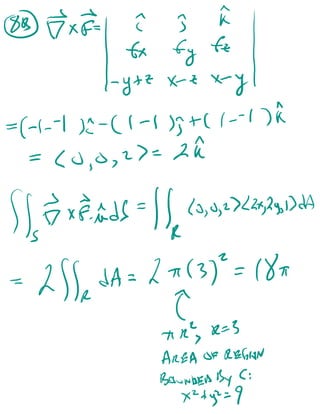 8B) ∇⃗ x F⃗ = | î ĵ k̂
∂/∂x ∂/∂y ∂/∂z
-y+z x-z x-y |
= (-1--1)î - (1-1)ĵ + (1--1)k̂
= <0,0,2> = 2k̂
∬_S ∇⃗ x F⃗ · n̂ dS = ∬_R <0,0,2><2x,2y,1>dA
= 2∬_R dA = 2π(3)² = 18π
πR², R=3
AREA OF REGION
BOUNDED BY C:
x²+y²=9